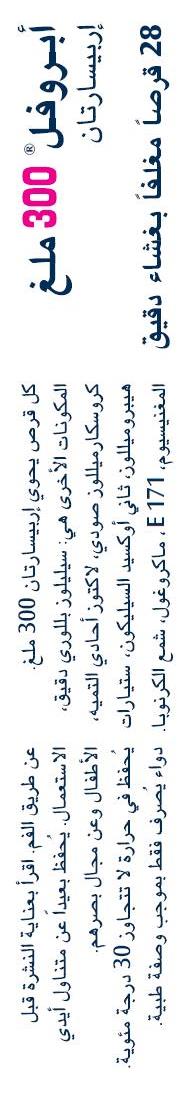 أبروفل® 300 ملغ
إربيسارتان
28 قرصاً مغلفاً بغشاء دقيق
كل قرص يحوي إربيسارتان 300 ملغ.
المكونات الأخرى هي: سيليلوز بللوري دقيق،
كروسكارميللوز صودي، لاكتوز أحادي التميه،
هيبروميللوز، ثاني أوكسيد السيليكون، ستيارات
المغنيسيوم، E 171، ماكروغول، شمع الكرنوبا.
عن طريق الفم. اقرأ بعناية النشرة قبل
الاستعمال. يُحفظ بعيداً عن متناول أيدي
الأطفال وعن مجال بصرهم.
يُحفظ في حرارة لا تتجاوز 30 درجة مئوية.
دواء يُصرف فقط بموجب وصفة طبية.